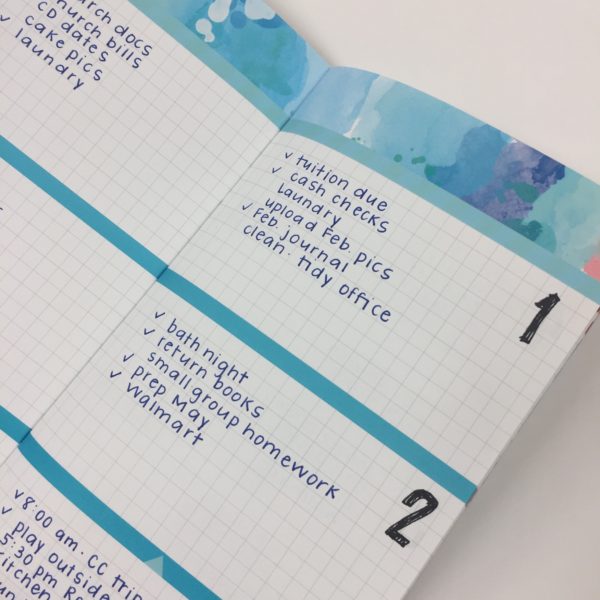 docs
bills
CD dates
✓ cake pics
laundry
✓ tuition due
✓ cash checks
laundry
upload Feb. pics
✓ Feb. journal
clean · tidy office
1
✓ bath night
✓ return books
small group homework
✓ prep May
✓ Walmart
2
✓ 8:00 am · CC trip
✓ play outside
5:30 pm